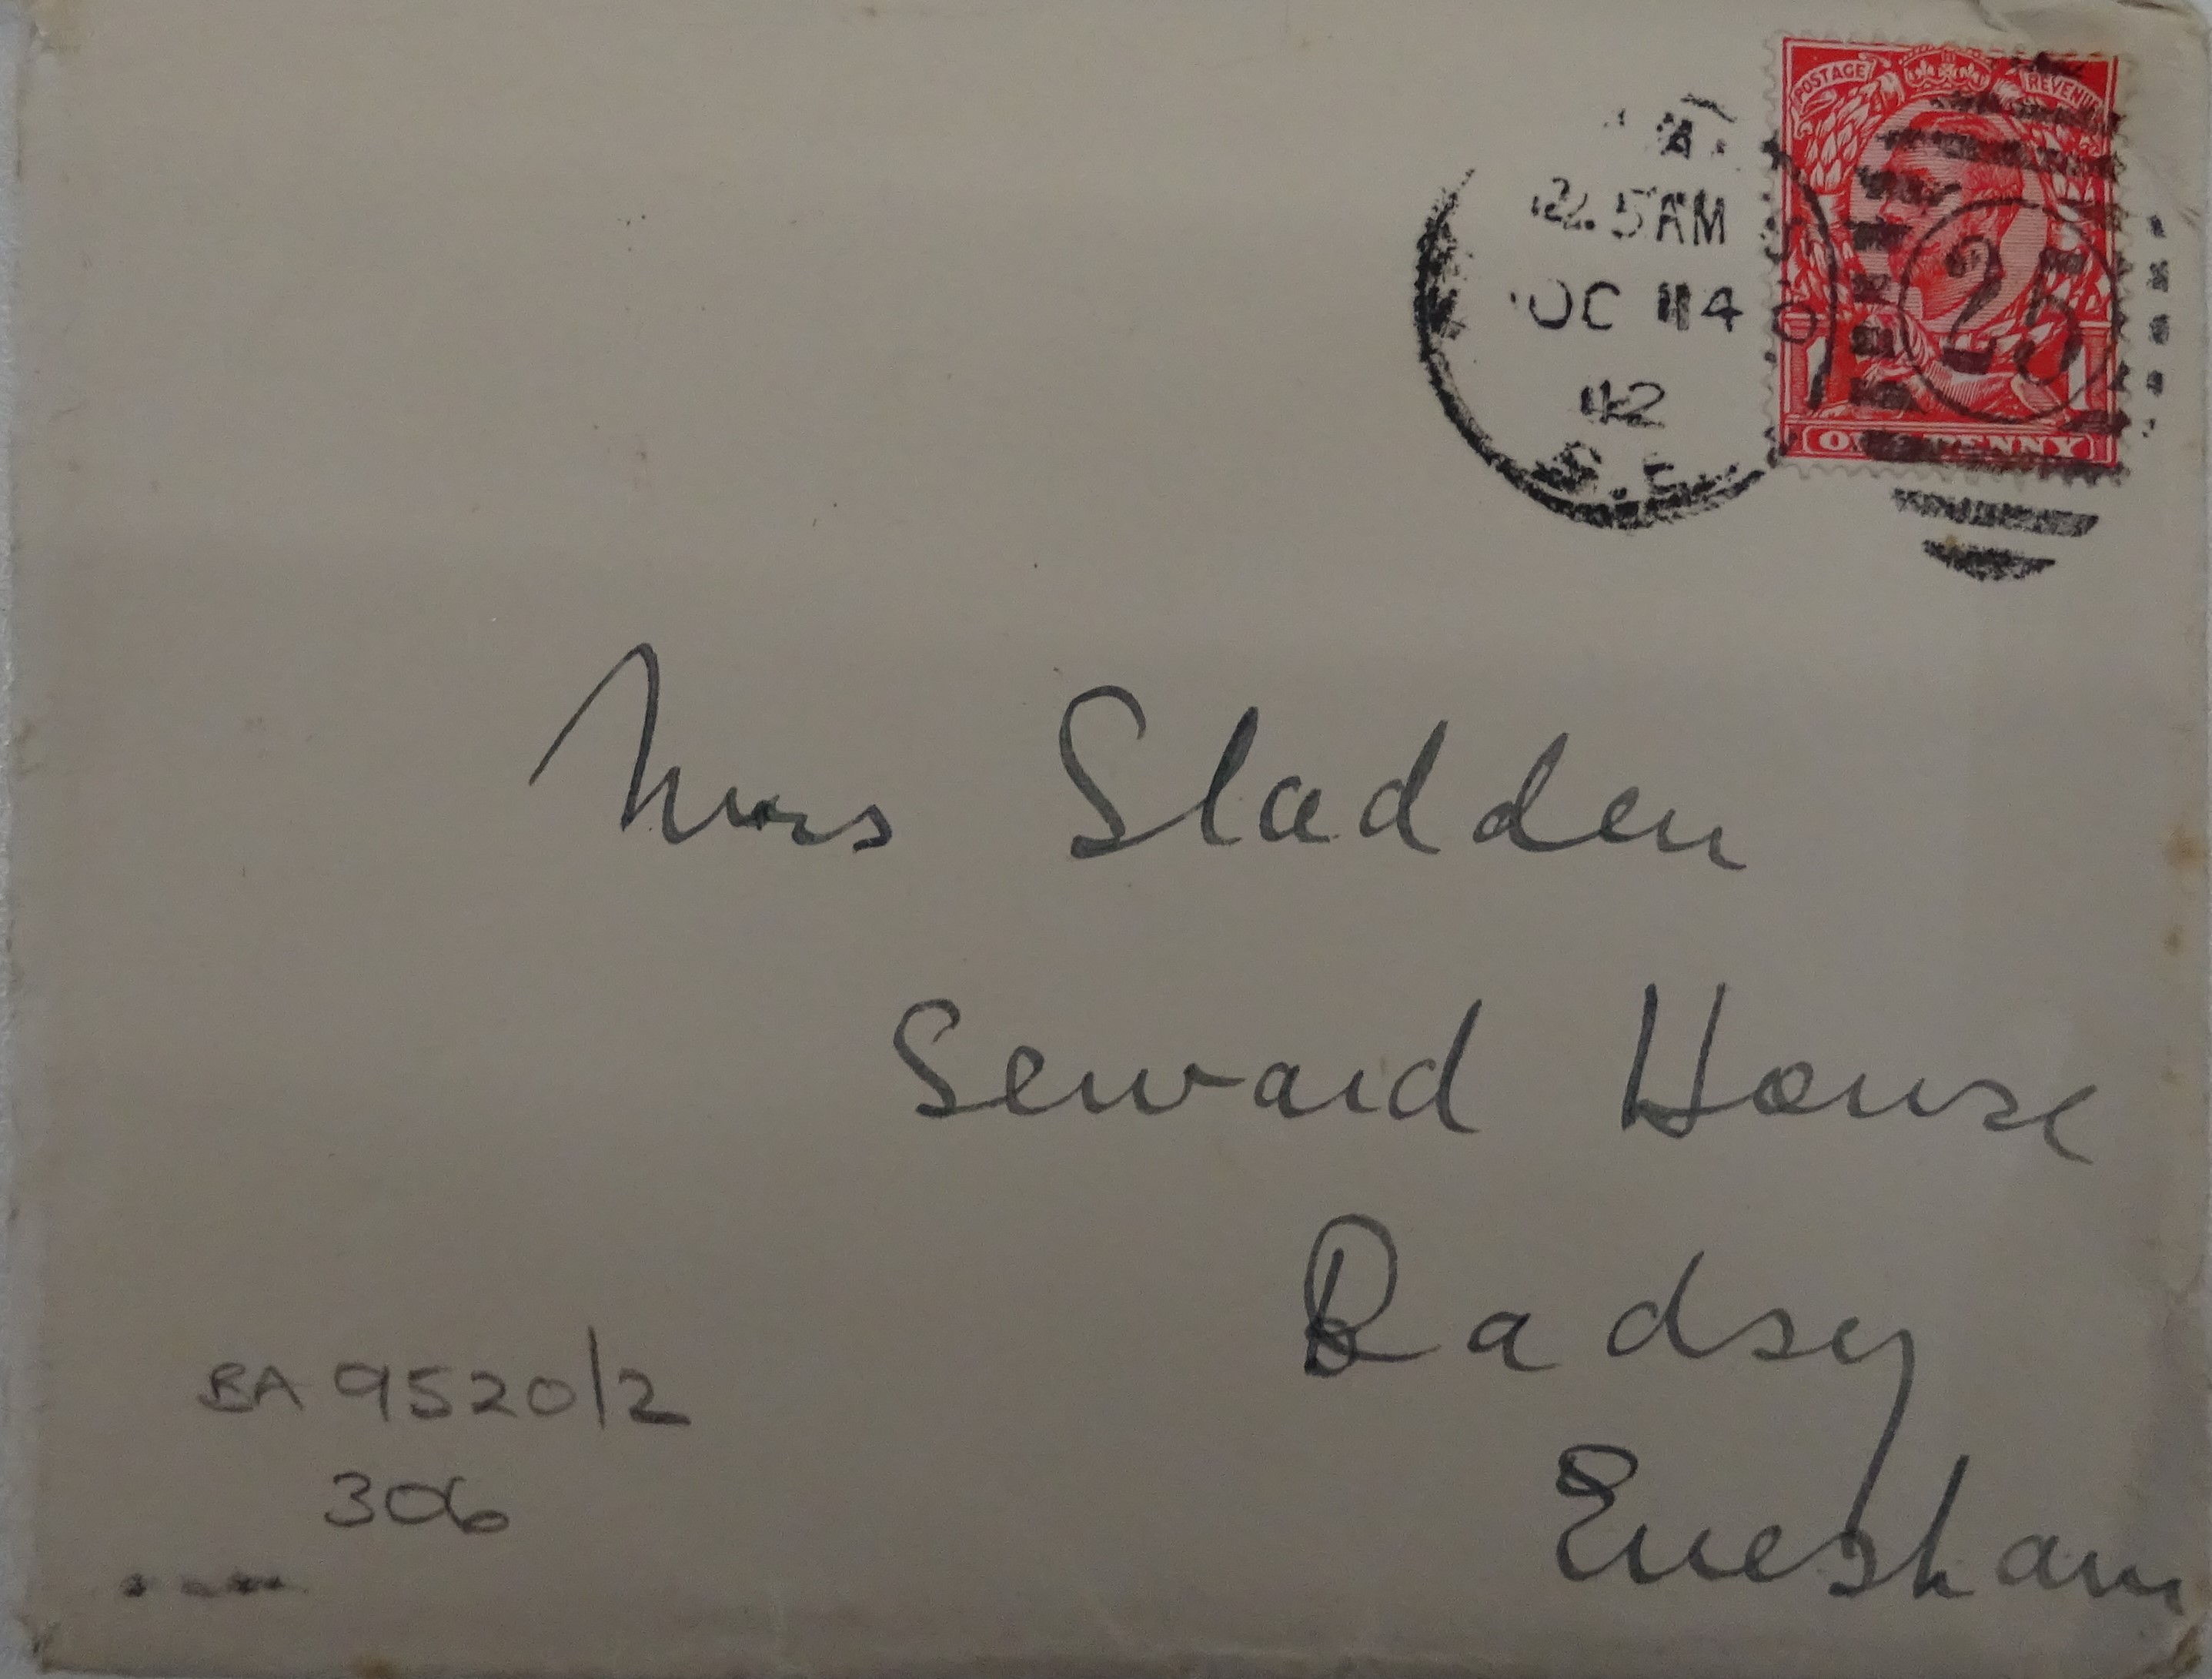 POSTAGE REVENUE
12.5AM
OC 14
12
S.E.
25
ONE PENNY
Mrs Sladden
Seward House
Badsey
Evesham
BA 9520/2
306